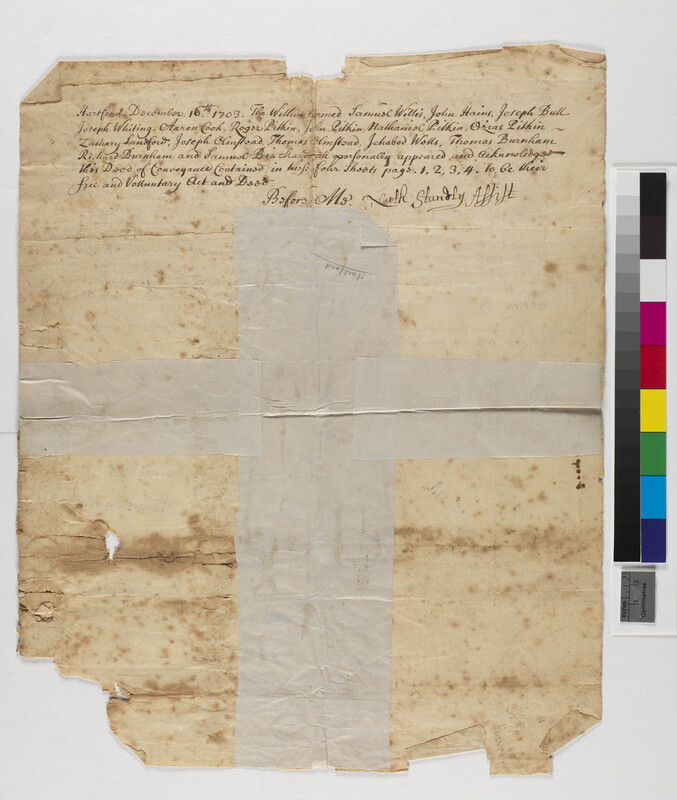 Hartford December 16th 1703. The Within named Samuel Willis, John Hains, Joseph Bull
Joseph Whiting, Aaron Cook, Roger Pitkin, John Pitkin Nathaniel Pitkin, Ozias Pitkin
Zachary Sandford, Joseph Olmstead, Thomas Olmstead, Ichabod Wells, Thomas Burnham
Richard Burnham and Samuel personally appeared and Acknowledged
this Deed of Conveyance Contained in these four Sheets page. 1. 2. 3. 4. to be their
free and Volluntary Act and Deed
Before Me. Standly Assist
Hartford
Centimetres